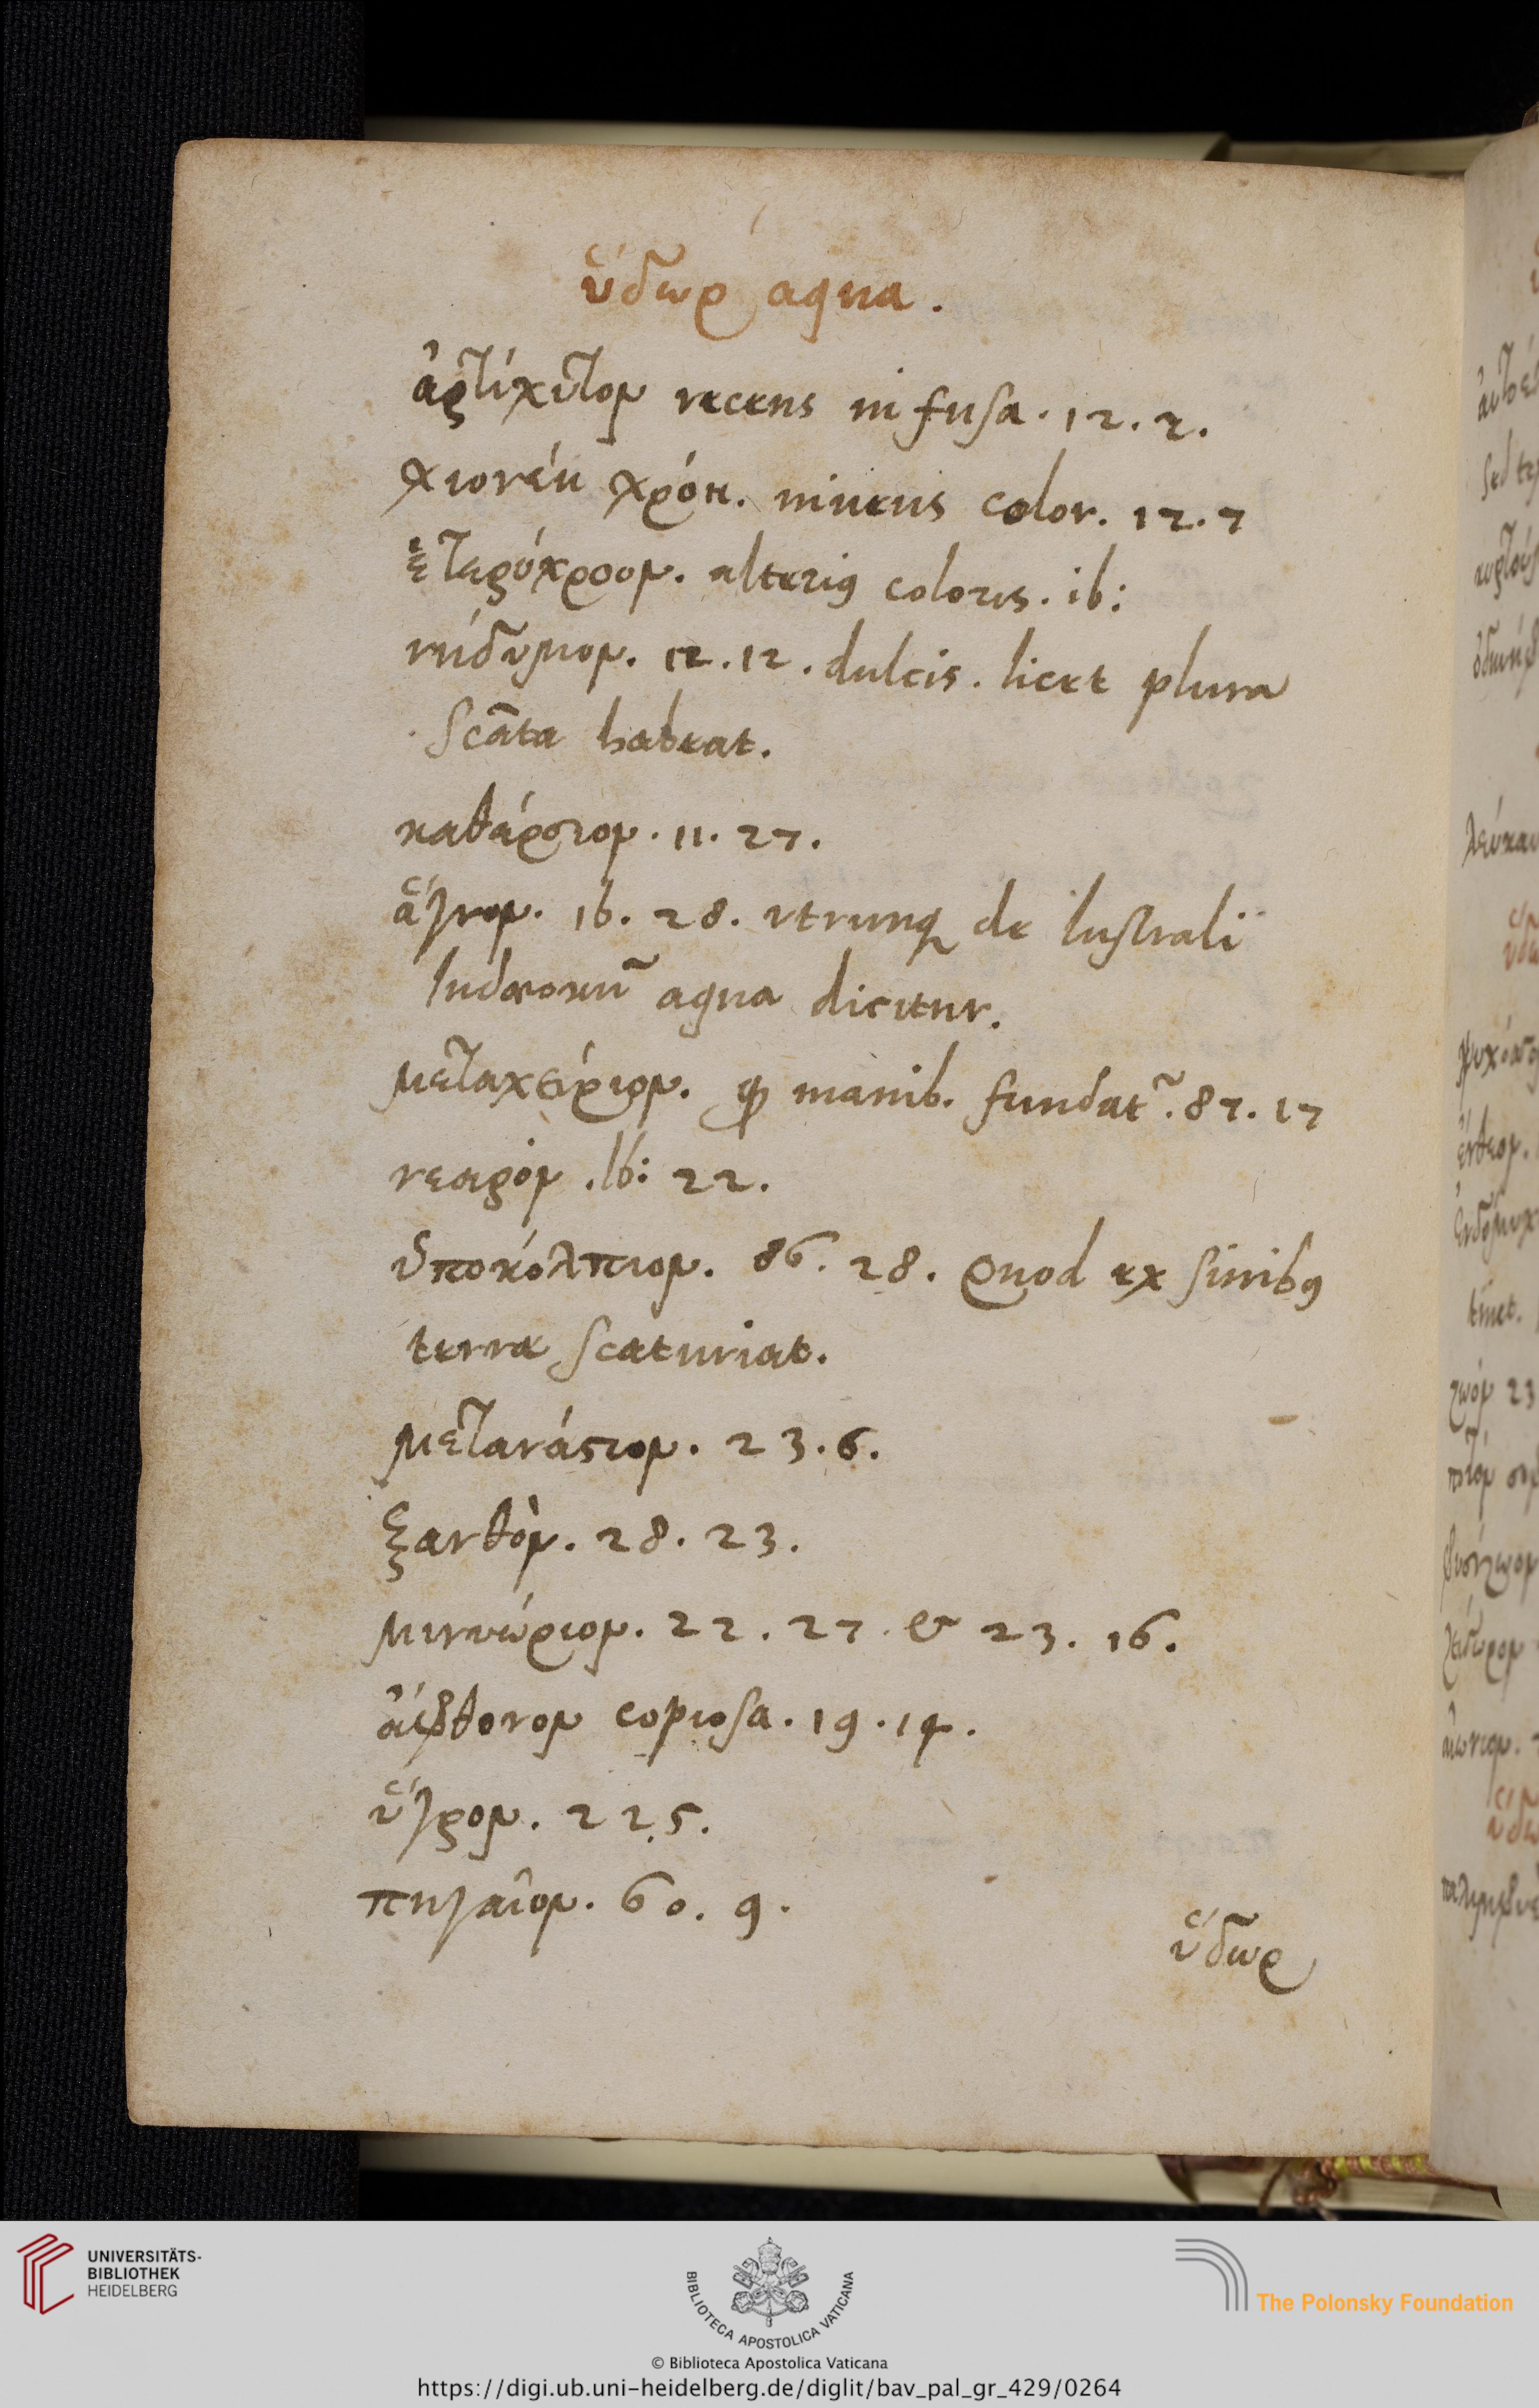 ὕδωρ aqua.
ἀρτίχυτον recens infusa. 12. 2.
χιονέη χρόη. niueus color. 12. 7
ἑτερόχροον. alterius coloris. ib:
νήδυμον. 12. 12. dulcis. licet plura
scãta habeat.
καθάρσιον. 11. 27.
ἅγνον. ib. 28. vtrunq de lustrali
Iudæorũ aqua dicitur.
μεταχείριον. manib. fundat̃. 87. 17
νεαρὸν. Ib: 22.
ὑποκόλπιον. 86. 28. Quod ex sinibus
terræ scaturiat.
μετανάστιον. 23. 6.
ξανθὸν. 28. 23.
μινυώριον. 22. 27. & 23. 16.
ἄφθονον copiosa. 19. 14.
ὕγρον. 22. 5.
πηγαῖον. 60. 9.
ὕδωρ
UNIVERSITÄTS-
BIBLIOTHEK
HEIDELBERG
BIBLIOTECA APOSTOLICA VATICANA
The Polonsky Foundation
© Biblioteca Apostolica Vaticana
https://digi.ub.uni-heidelberg.de/diglit/bav_pal_gr_429/0264